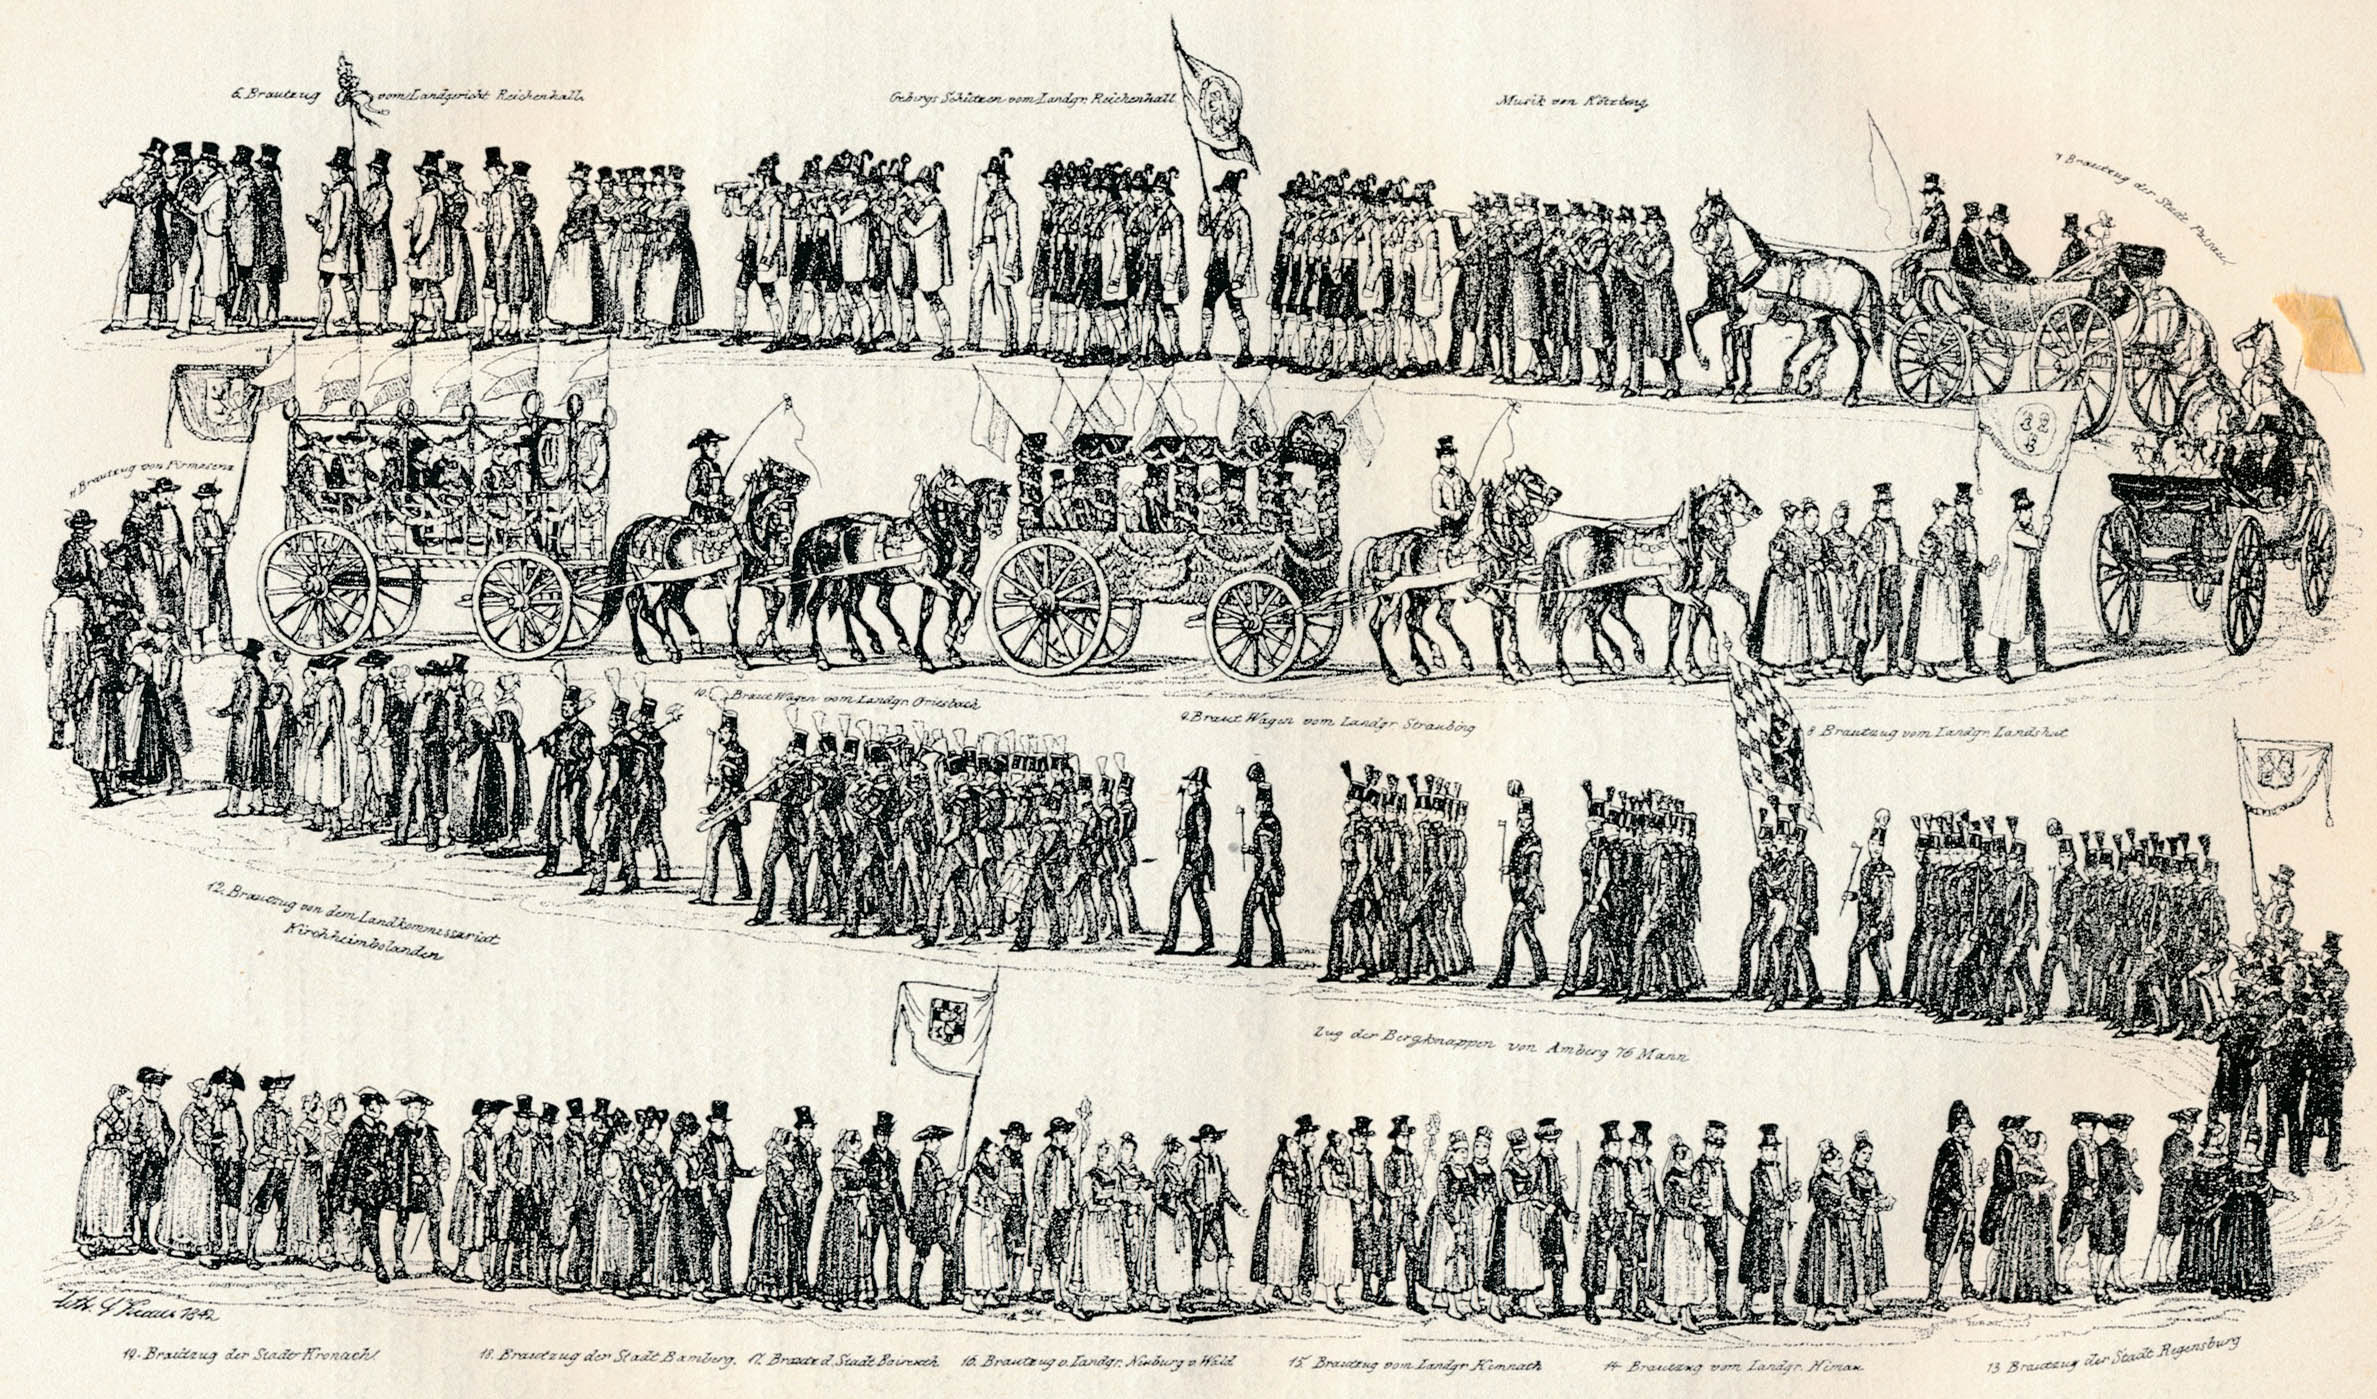 6. Brautzug vom Landgericht Reichenhall.
Gebirgs Schützen vom Landgr. Reichenhall
Musik von Kötzting
7 Brautzug der Stadt Passau
11 Brautzug von Pirmasenz
10. Braut Wagen vom Landgr. Griesbach
9. Braut Wagen vom Landgr. Straubing
8 Brautzug vom Landgr. Landshut
12. Brautzug von dem Landkommissariat
Kirchheimbolanden
Zug der Bergknappen von Amberg 76 Mann
Lith. G Kraus 1842
19. Brautzug der Stadt Kronach.
18. Brautzug der Stadt Bamberg.
17. Brautz d. Stadt Baireuth
16. Brautzug v. Landgr. Neuburg v Wald
15 Brautzug vom Landgr Kemnath
14 Brautzug vom Landgr.
13 Brautzug der Stadt Regensburg